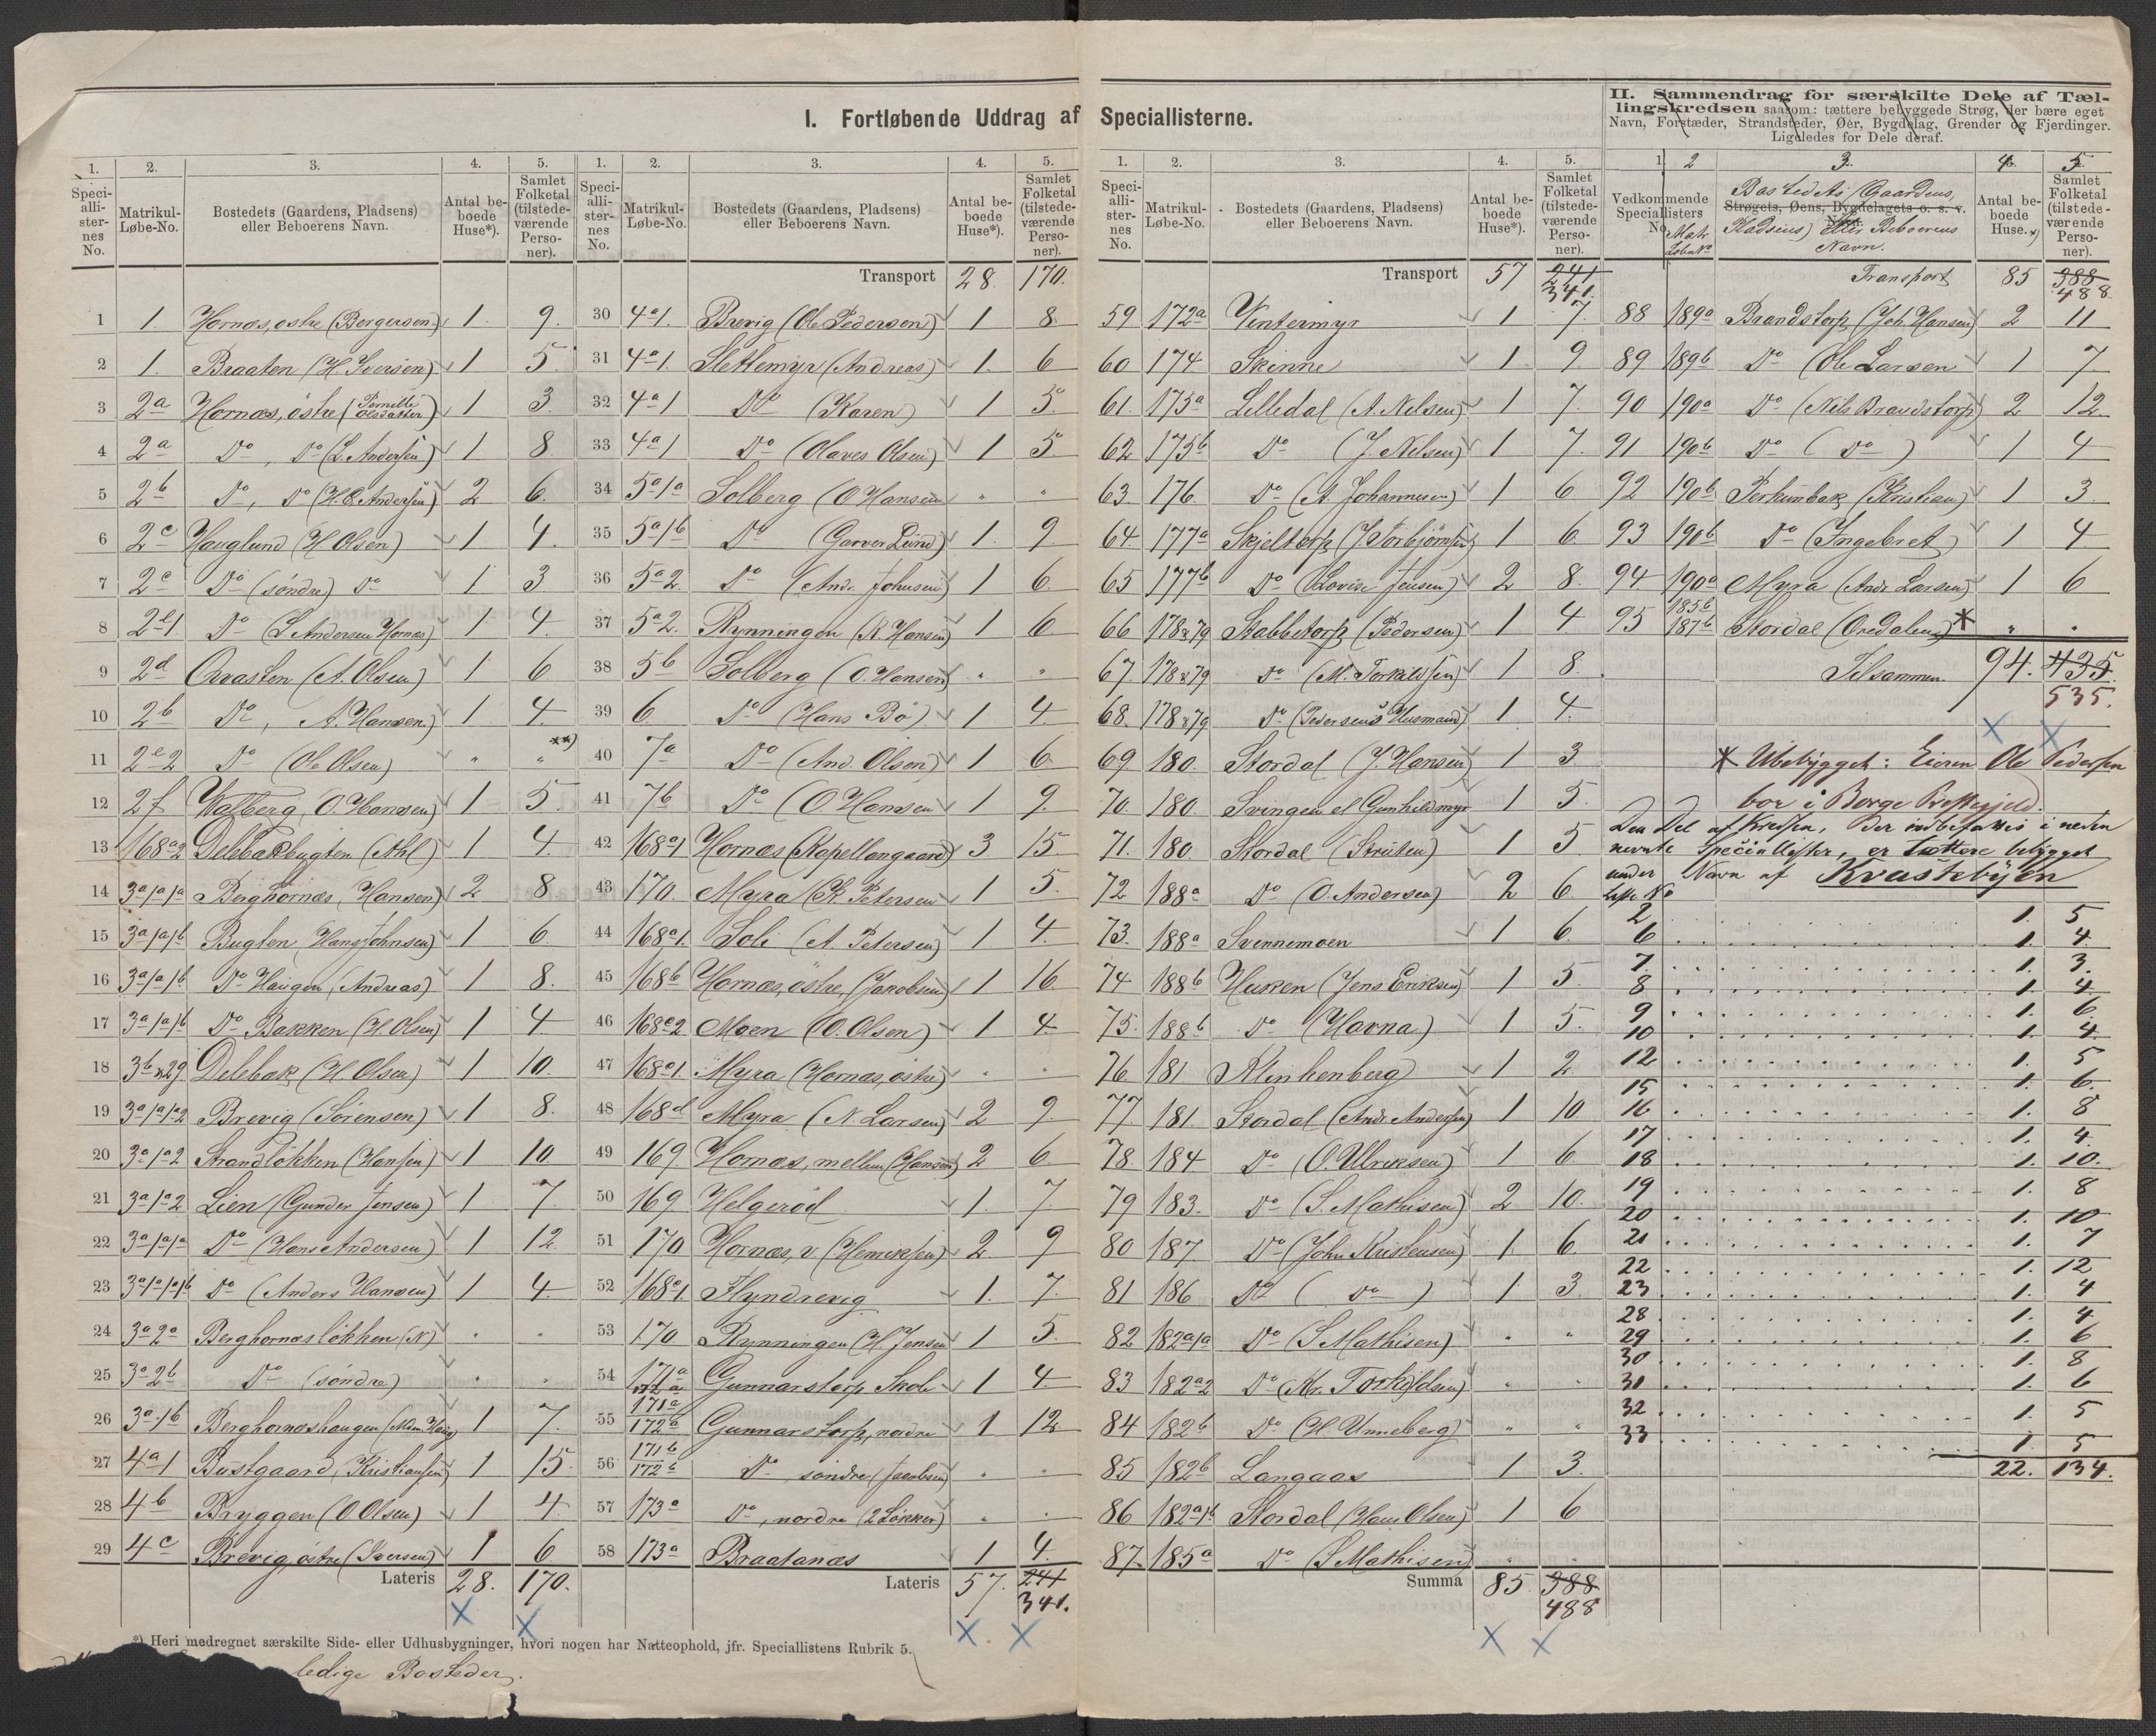 I. Fortløbende Uddrag af Speciallisterne.
II. Sammendrag for særskilte Dele af Tællingskredsen saasom: tættere bebyggede Strøg, der bære eget
Navn, Forstæder, Strandsteder, Øer, Bygdelag, Grender og Fjerdinger.
Ligeledes for Dele deraf.
1. 2. 3. 4. 5.
Speciallisternes No. Matrikul-Løbe-No. Bostedets (Gaardens, Pladsen) eller Beboerens Navn. Antal beboede Huse*). Samlet Folketal (tilstedeværende Personer).
1 1. Hornæs, østre (Bergersen) 1 9.
2 1. Braaten (H. Iversen) 1 5
3 2a Hornæs, østre (Pernille Olsdatter) 1 3
4 2a Do, Do (L. Andersen) 1 8
5 2b Do, Do (H. E. Andersen) 2 6.
6 2c Hauglund (H Olsen) 1 4.
7 2c Do (søndre) Do 1 3
8 2e1 Do (L Andersen Hornæs) 1 4.
9 2d Orrasten (A. Olsen) 1 6
10 2b Do, A. Hansen) 1 4
11 2e2 Do (Ole Olsen) " " **)
12 2f Kalberg, O. Hansen) 1 5.
13 168a2 Delebækbugten (Ahl) 1 4.
14 3a1a1a Berghornæs, Hansen) 2 8
15 3a1a1b Bugten Hans Johnsen) 1 6
16 3a1a1b Do Haugen (Andreas) 1 8.
17 3a1a1b Do Bakken (H. Olsen) 1 4
18 3b &29 Delebæk (H. Olsen) 1 10.
19 3a1a1a2 Brevig (Sørensen) 1 8.
20 3a1a2 Strandløkken (Hansen) 1 10.
21 3a1a2 Lien (Gunder Jensen) 1 7.
22 3a1a1a Do (Hans Andersen) 1 12
23 3a1a1a1b Do (Anders Hansen) 1 4.
24 3a2a Berghornæs løkken (N) " "
25 3a2b Do (søndre) " "
26 3a1b Berghornæshaugen 1 7.
27 4a1 Bustgaard, Kristiansen) 1 15.
28 4b Bryggen (O Olsen) 1 4
29 4c Brevig, østre (Iversen) 1 6
Lateris 28. 170.
1. 2. 3. 4. 5.
Speciallisternes No. Matrikul-Løbe-No. Bostedets (Gaardens, Pladsen) eller Beboerens Navn. Antal beboede Huse*). Samlet Folketal (tilstedeværende Personer).
Transport 28. 170.
30 4a1. Brevig (Ole Pedersen) 1 8.
31 4a1. Slettemyr (Andreas) 1. 6
32 4a1 Do (Karen) 1 5.
33 4a1 Do (Olaves Olsen) 1 5.
34 5a1a Solberg (O Hansen " "
35 5a1b Do (Garver Lund) 1. 9.
36 5a2. Do (Andr. Johnsen) 1 6.
37 5a2. Rynningen (K. Hansen) 1 6
38 5b Solberg (O. Hansen) " "
39 6 Do (Hans Bø) 1 4.
40 7a Do (And. Olsen) 1 6
41 7b Do (O. Hansen 1 9.
42 168a1 Hornæs (Kapellangaard) 3. 15.
43 170. Myra (K. Petersen 1 5.
44 168a1. Soli (A. Petersen) 1 4.
45 168b Hornæs, østre, (Jakobsen) 1 16
46 168c2 Moen (O. Olsen) 1 4.
47 168a1. Myra (Hornæs, østre) " "
48 168d Myra (N. Larsen) 2 9.
49 169. Hornæs, mellem (Hansen) 2 6
50 169 Helgerød 1. 7.
51 170 Hornæs, v (Henriksen) 2. 9
52 168a1. Flyndrevig 1. 7.
53 170 Rynningen (H. Jensen 1 5.
54 171a 172a Gunnarstorp Skole 1 4
55 171a 172a Gunnarstorp, nordre 1 12
56 171b 172b Do søndre (Jacobsen) " "
57 173a Do, nordre (2 Løkker) " "
58 173a Braatanæs 1 4.
Lateris 57. 241 341.
1. 2. 3. 4. 5.
Speciallisternes No. Matrikul-Løbe-No. Bostedets (Gaardens, Pladsen) eller Beboerens Navn. Antal beboede Huse*). Samlet Folketal (tilstedeværende Personer).
Transport 57 241 341.
59 172a Vintermyr 1 7.
60 174 Skinne 1. 9.
61. 175a Lilledal (A. Nelsen) 1 7.
62 175b Do (J. Nilsen) 1 7.
63 176. Do (A Johannesen) 1 6
64 177a Skjeltorp (J. Torbjørnsen) 1 6
65 177b Do (Lovise Jensen) 2 8.
66 178&79 Stabbetorp (Pedersen) 1 4
67 178&79 Do (M. Torkildsen) 1 8.
68. 178&79 Do (Pedersens Husmand) 1 4.
69. 180. Stordal (J. Hansen) 1 3
70. 180. Svingen el Gunhildmyr 1 5.
71. 180. Stordal 1 5
72 188a Do (O. Andersen) 2 6.
73. 188a Svennemoen 1 6.
74 188b Huken (Jens Eriksen) 1 5.
75. 188b Do (Hovna) 1 5.
76 181 Klinkenberg 1 2.
77. 181. Stordal (Andr Andersen) 1 10
78 184 Do (O. Ulriksen) 1 6.
79 183. Do (S. Mathisen) 2 10.
80 187 Do (John Kristensen) 1. 6
81 186 Do ( Do ) 1. 3.
82 182a1a Do (S Mathisen) " "
83 182a2 Do (Kr. Torkildsen) " "
84 182b Do (H. Unneberg) " "
85 182b Langaas 1 3.
86 182a1b Stordal (Hans Olsen) 1 6
87. 185a Do (S Mathisen) " "
Summa 85. 388 488
1. 2 3. 4. 5.
Vedkommende Speciallisters No. Matr. Løbe No Strøgets, Øens, Bygdelagets o. s. v. Navn. Bostedets (Gaardens, Pladsens) eller Beboerens Navn. Antal beboede Huse.*) Samlet Folketal (tilstedeværende Personer).
Transport 85 388 488
88 189a Brandstorp (Joh. Hansen) 2 11
89 189b Do (Ole Larsen 1 7.
90 190a Do (Nils Brandstorp) 2 12.
91 190b Do ( Do ) 1 4
92 190b Perkinbæk (Kristian) 1 3.
93 190b Do (Ingebret) 1 4
94. 190a Myra (Andr Larsen) 1 6
95 185b 187b Stordal (Oredalen) * " "
Tilsammen 94. 435. 535.
* Ubebygget: Eieren Ole Pedersen
bor i Borge Præstegjeld.
Den Del af Kredsen, der indbefattes i neden
nævnte Speciallister, er tættere bebygget
under Navn af Kvastebyen
Liste No
2 1. 5
6 1. 4.
7. 1. 3.
8 1. 4
9 1. 6.
10 1. 4.
12 1. 5
15 1. 6.
16 1. 8
17 1. 4.
18 1. 10.
19 1. 8
20 1. 10
21 1. 7
22 1. 12
23 1. 4
28 1. 4
29 1. 6
30 1. 8
31 1. 6
32 1. 5
33 1. 5
22. 134.
*) Heri medregnet særskilte Side- eller Udhusbygninger, hvori nogen har Natteophold, jfr. Speciallistens Rubrik 5.
ledige Bosteder.